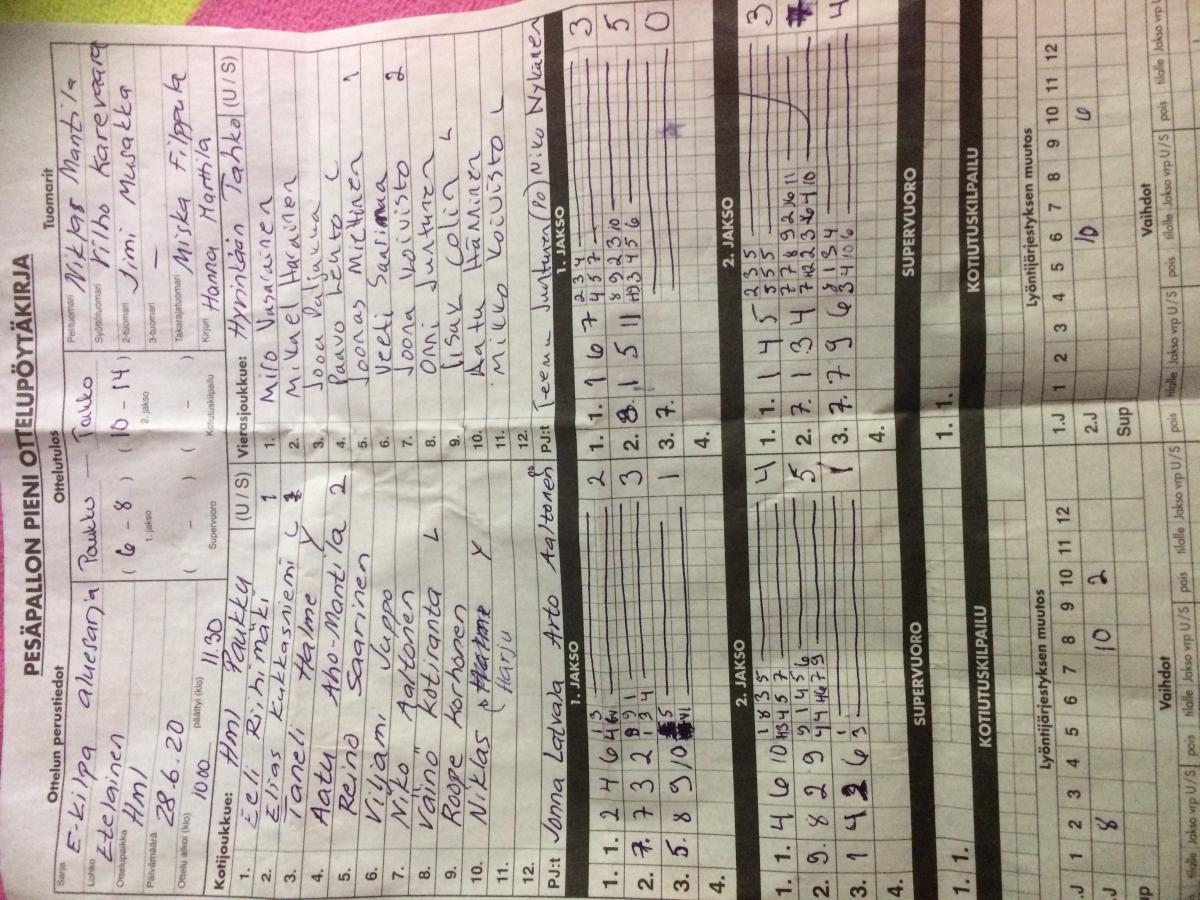 PESÄPALLON PIENI OTTELUPÖYTÄKIRJA
Ottelun perustiedot
Sarja E-kilpa aluesarja
Lohko Eteläinen
Ottelupaikka Hml
Päivämäärä 28.6.20
Ottelu alkoi (klo) 10.00 päättyi (klo) 11.30
Ottelutulos
Paukku — Tahko
( 6 - 8 ) ( 10 - 14 )
1. jakso 2. jakso
( - ) ( - )
Supervuoro Kotiutuskilpailu
Tuomarit
Pelituomari Niklas Mantila
Syöttötuomari Vilho Karevaara
2-tuomari Jimi Musakka
3-tuomari —
Takarajatuomari Miska Filppula
Kirjuri Hanna Marttila
Kotijoukkue: Hml Paukku (U / S)
1. Eeli Riihimäki 1
2. Elias Kukkasniemi L
3. Taneli Halme Y
4. Aatu Aho-Mantila 2
5. Reino Saarinen
6. Viljami Juppo
7. Niko Aaltonen
8. Väinö Kotiranta L
9. Roope Korhonen
10. Niklas Harju Y
11.
12.
PJ:t Jonna Latvala Arto Aaltonen
Vierasjoukkue: Hyvinkään Tahko (U / S)
1. Milo
2. Mikael Harvainen
3. Joona
4. Paavo Lehto L
5. Joonas Miettinen 1
6. Veeti Saarimaa
7. Joona Koivisto 2
8. Onni Junturen
9. Iisak Colin L
10. Aatu Hänninen
11. Mikko Koivisto L
12.
PJ:t Teemu Junturen (Po) Niko Nykänen
1. JAKSO
1. 1. 2 4 6 2
2. 7. 7 3 2 3
3. 5. 8 9 10 1
4.
1. JAKSO
1. 1. 1 6 7 3
2. 8. 1 5 11 5
3. 7. 0
4.
2. JAKSO
1. 1. 4 6 10 4
2. 9. 8 2 9 5
3. 1 4 2 6 1
4.
2. JAKSO
1. 1. 1 4 5 3
2. 7. 1 3 4
3. 7. 7 9 6 4
4.
SUPERVUORO
1. 1.
SUPERVUORO
1. 1.
KOTIUTUSKILPAILU
KOTIUTUSKILPAILU
Lyöntijärjestyksen muutos
.J 1 2 3 4 5 6 7 8 9 10 11 12
.J 8 10 2
up
Lyöntijärjestyksen muutos
1.J 1 2 3 4 5 6 7 8 9 10 11 12
2.J 10 6
Sup
Vaihdot
pois tilalle Jakso vrp U / S pois tilalle Jakso vrp U / S
Vaihdot
pois tilalle Jakso vrp U / S pois tilalle Jakso vrp U